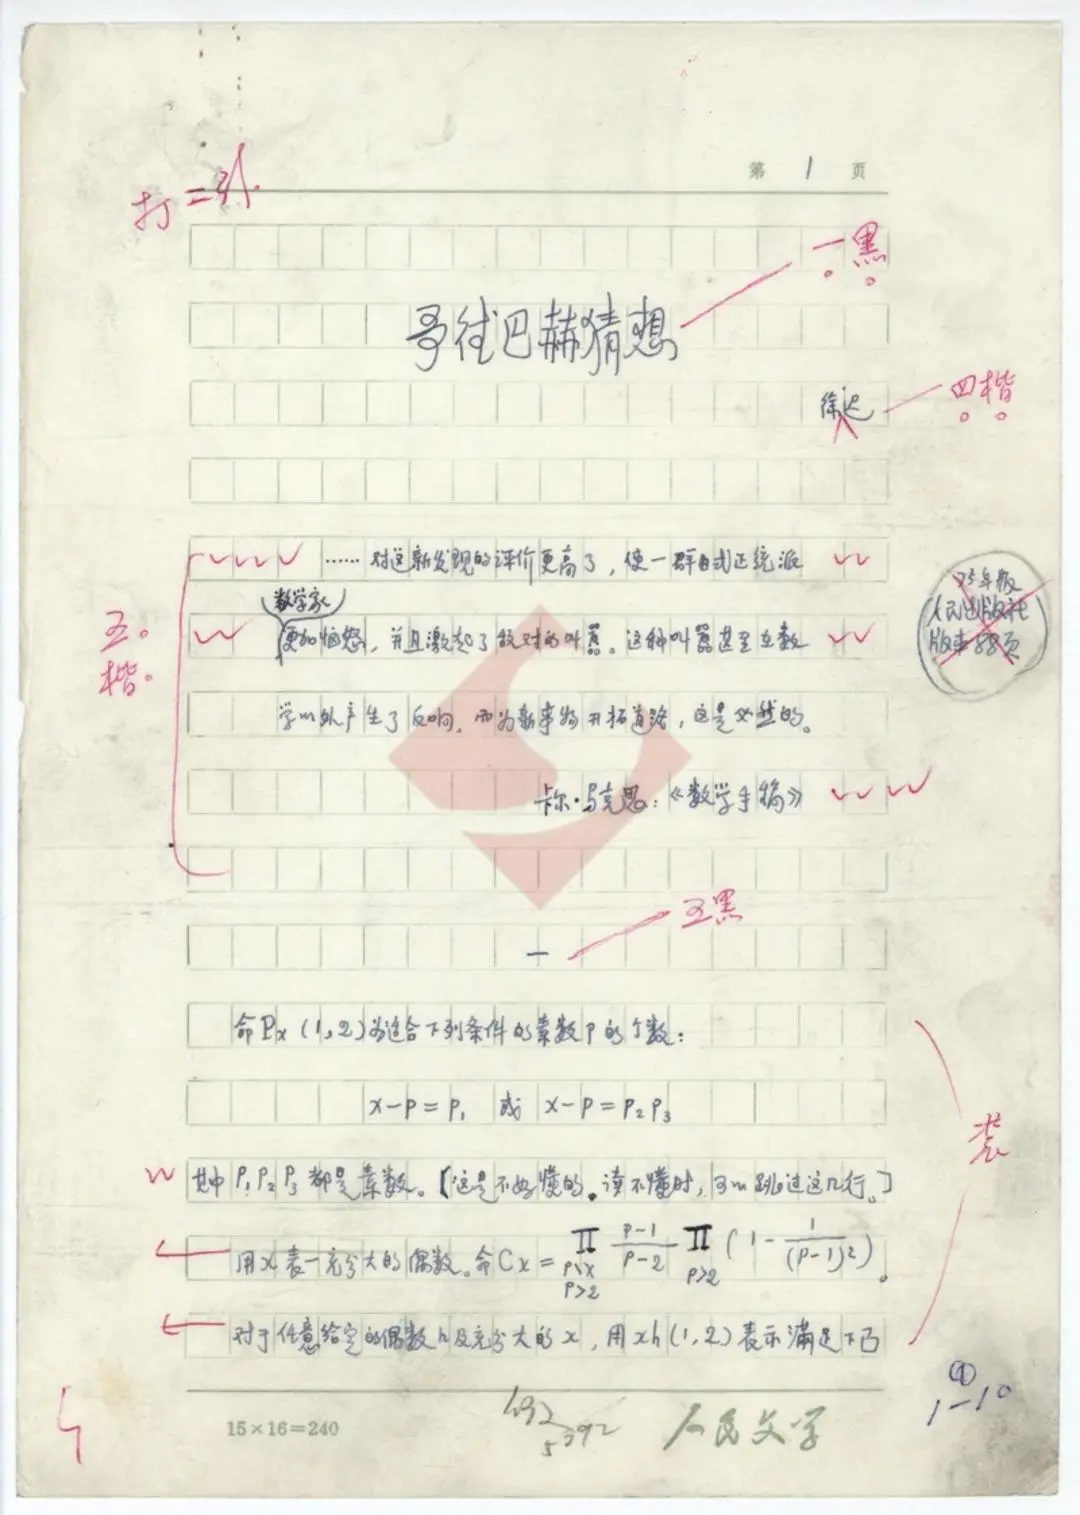 第 1 页
打二引
一黑
哥德巴赫猜想
徐迟
四楷
……对这新发现的评价更高了,使一群旧式正统派
数学家
更加恼怒,并且激起了敌对的叫嚣。这种叫嚣甚至在数
学以外产生了反响,而为新事物开拓道路,这是必然的。
卡尔·马克思:《数学手稿》
五楷
75年版
人民出版社
版本88页
一
五黑
命Px(1,2)为适合下列条件的素数P的个数:
x-P=P₁ 或 x-P=P₂P₃
其中P₁P₂P₃都是素数。【这是不好懂的。读不懂时,可以跳过这几行。】
用x表一充分大的偶数。命Cx= ∏ P\x P>2 (P-1)/(P-2) ∏ P>2 (1-1/(P-1)²)。
对于任意给定的偶数h及充分大的x,用xh(1,2)表示满足下面
15×16=240
人民文学
①
1-10